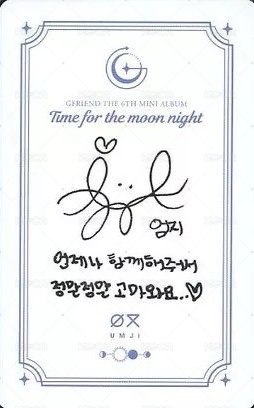 GFRIEND THE 6TH MINI ALBUM
Time for the moon night
엄지
언제나 함께해주셔서
정말정말 고마워요..♡
UMJI